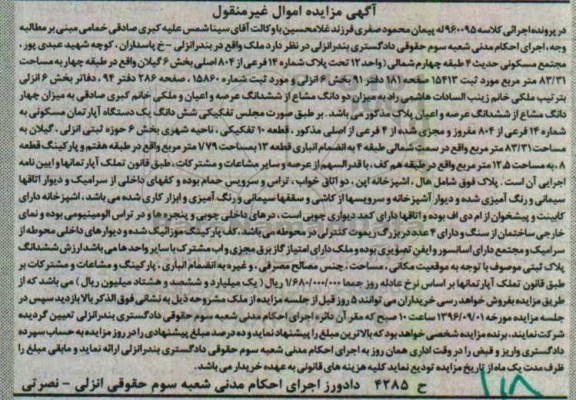 آگهی مزایده اموال غیرمنقول
در پرونده اجرائی کلاسه ۹۶۰۰۹۵ له پیمان محمود صفری فرزند غلامحسین با وکالت آقای سینا شمس علیه کبری صادقی خمامی مبنی بر مطالبه
وجه، اجرای احکام مدنی شعبه سوم حقوقی دادگستری بندرانزلی در نظر دارد ملک واقع در بندرانزلی - خ پاسداران - کوچه شهید عبدی پور -
مجتمع مسکونی حدیث ۴ طبقه چهارم شمالی (واحد ۱۲) تحت پلاک شماره ۱۴ فرعی از ۸۰۴ اصلی بخش ۶ گیلان واقع در طبقه چهار به مساحت
۸۳/۳۱ متر مربع مورد ثبت ۱۵۴۱۳ صفحه ۱۸۱ دفتر ۹۱ بخش ۶ انزلی و مورد ثبت شماره ۱۵۸۶۰، صفحه ۲۸۶ دفتر ۹۴، دفاتر بخش ۶ انزلی
بترتیب ملکی خانم زینب السادات هاشمی راده به میزان دو دانگ مشاع از ششدانگ عرصه و اعیان و ملکی خانم کبری صادقی به میزان چهار
دانگ مشاع از ششدانگ عرصه و اعیان پلاک مذکور می باشد. بر طبق صورت مجلس تفکیکی شش دانگ یک دستگاه آپارتمان مسکونی به
شماره ۱۴ فرعی از ۸۰۴ مفروز و مجزی شده از ۴ فرعی از اصلی مذکور، قطعه ۱۰ تفکیکی، ناحیه شهری بخش ۶ حوزه ثبتی انزلی، گیلان به
مساحت ۸۳/۳۱ متر مربع واقع در سمت شمالی طبقه ۴ به انضمام انباری قطعه ۱۳ بمساحت ۷/۷۹ متر مربع واقع در طبقه هفتم و پارکینگ قطعه
۸، به مساحت ۱۲.۵ متر مربع واقع در طبقه هم کف، با قدرالسهم از عرصه و سایر مشاعات و مشترکات، طبق قانون تملک آپارتمانها و آیین نامه
اجرایی آن است. پلاک فوق شامل هال، آشپزخانه اپن، دو اتاق خواب، تراس و سرویس حمام بوده و کفهای داخلی از سرامیک و دیوار اتاقها
سیمانی و رنگ آمیزی شده و دیوار آشپزخانه و سرویسها از کاشی و سقفها سیمانی و رنگ آمیزی و ابزار کاری شده می باشد، آشپزخانه دارای
کابینت و پیشخوان از ام دی اف بوده و اتاقها دارای کمد دیواری چوبی است، درهای داخلی چوبی و پنجره ها و در تراس آلومینیومی بوده و نمای
خارجی ساختمان از سنگ و دارای ۴ عدد در بزرگ ریموت کنترلی در محوطه می باشد، کف پارکینگ موزائیک شده و دیوارهای داخلی محوطه از
سرامیک و مجتمع دارای آسانسور و آیفن تصویری بوده و ملک دارای امتیاز گاز برق مجزی و آب مشترک با سایر واحدها می باشد ارزش ششدانگ
پلاک ثبتی موصوف با توجه به موقعیت مکانی، مساحت، جنس مصالح مصرفی، و غیره به انضمام انباری، پارکینگ و مشاعات و مشترکات بر
طبق قانون تملک آپارتمانها بر اساس نرخ عادله روز جمعا ۱/۶۸۰/۰۰۰/۰۰۰ ریال (یک میلیارد و ششصد و هشتاد میلیون ریال) می باشد که از
طریق مزایده بفروش خواهد رسی خریداران می توانند ۵ روز قبل از جلسه مزایده از ملک مشروحه ذیل به نشانی فوق الذکر بالا بازدید سپس در
جلسه مزایده مورخه ۱۳۹۶/۰۹/۰۱ ساعت ۱۰ صبح که مقر آن دائره اجرای احکام مدنی شعبه سوم حقوقی دادگستری بندرانزلی تعیین گردیده
شرکت نمایند، برنده مزایده شخصی خواهد بود که بالاترین مبلغ را پیشنهاد نماید و ده درصد مبلغ پیشنهادی را در روز مزایده به حساب سپرده
دادگستری واریز و قبض را در وقت اداری همان روز به اجرای احکام مدنی شعبه سوم حقوقی دادگستری بندرانزلی ارائه نماید و مابقی مبلغ را
ظرف مدت یک ماه از تاریخ مزایده تودیع نماید کلیه هزینه های قانونی به عهده خریدار می باشد.
ح ۴۲۸۵ دادورز اجرای احکام مدنی شعبه سوم حقوقی انزلی - نصرتی